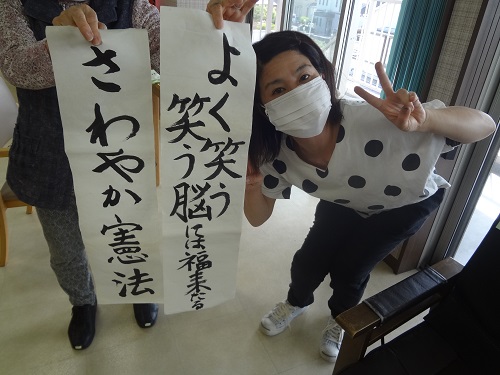 よく笑う
笑う脳には福来たる
さわやか憲法